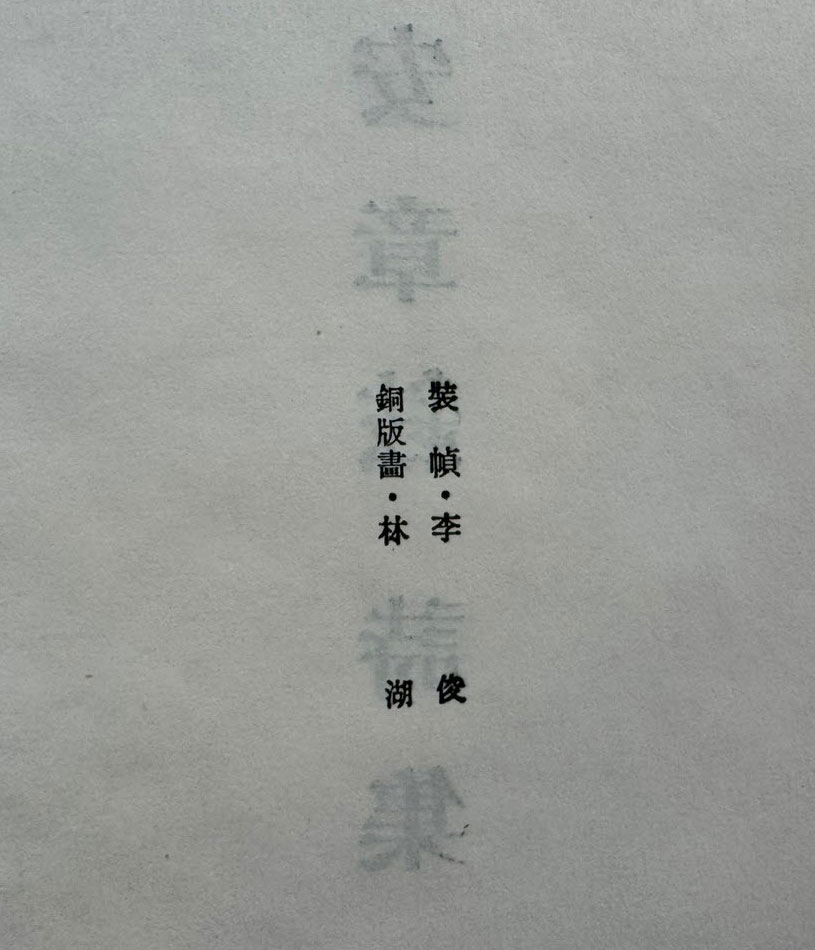 裝幀・李俊
銅版畫・林湖